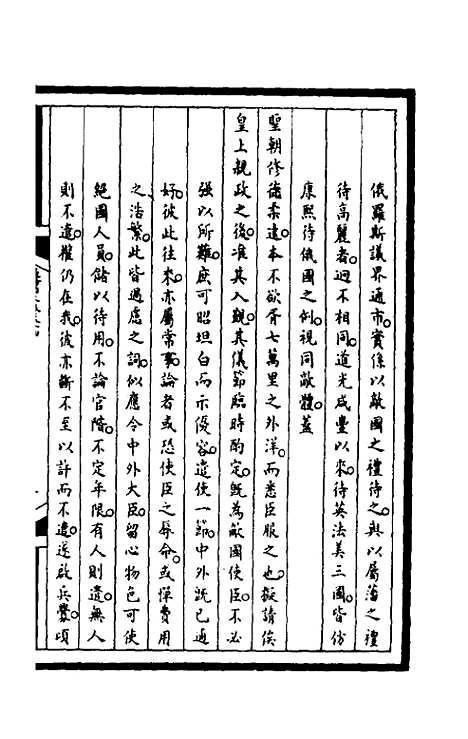 俄羅斯議界通市。實係以敵國之禮待之。與以屬藩之禮
待高麗者。迥不相同。道光咸豐以來。待英法美三國。皆仿
康熙待俄國之例。視同敵體。蓋
聖朝修德柔遠。本不欲胥七萬里之外洋。而悉臣服之也。擬請俟
皇上親政之後。准其入覲。其儀節臨時酌定。旣為敵國使臣。不必
強以所難。庶可昭坦白而示優容。遣使一節。中外旣已通
好。彼此往來。亦屬常事。論者或恐使臣之辱命。或憚費用
之浩繁。此皆過慮之詞。似應令中外大臣。留心物色可使
絕國人員。儲以待用。不論官階。不定年限。有人則遣。無人
則不遣。權仍在我。彼亦斷不至以許而不遣。遂啟兵釁。頃